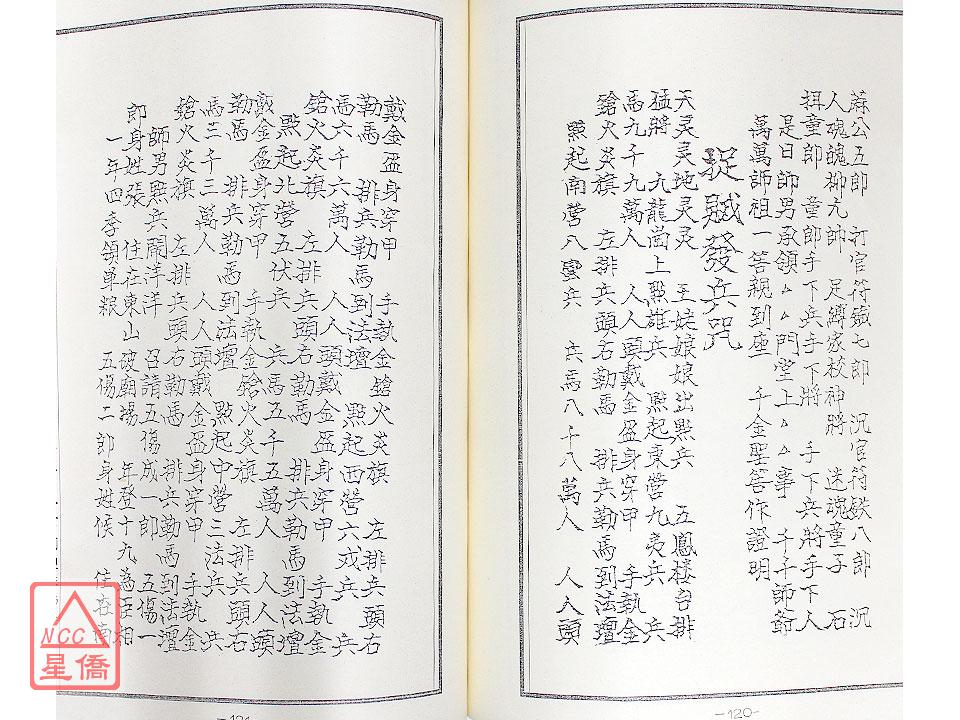 蔴公五郎 打官符㷍七郎 沉官符鉄八郎 沉
人魂魄柳九帥 足縛家梭神將 迷魂童子 石
揖童郎 童郎手下兵手下將 手下兵將手下人
是日師男承領△△門堂上△△事 千千師爺
萬萬師祖一答親到座 千金聖答作證明
捉賊發兵咒
天灵灵地灵灵 王姥娘娘出點兵 五鳳楼台排
猛將 九龍崗上點雄兵 點起東營九夷兵 兵
馬九千九萬人 人人頭戴金盔身穿甲 手執金
鎗火炎旗 左排兵頭右勒馬 排兵勒馬到法壇
點起南營八蛮兵 兵馬八千八萬人 人人頭
戴金盔身穿甲 手執金鎗火炎旗 左排兵頭右
勒馬 排兵勒馬到法壇 點起西營六戎兵 兵
馬六千六萬人 人人頭戴金盔身穿甲 手執金
鎗火炎旗 左排兵頭右勒馬 排兵勒馬到法壇
點起北營五伏兵 兵馬五千五萬人 人人頭
戴金盔身穿甲 手執金鎗火炎旗 左排兵頭右
勒馬 排兵勒馬到法壇 點起中營三法兵 兵
馬三千三萬人 人人頭戴金盔身穿甲 手執金
鎗火炎旗 左排兵頭右勒馬 排兵勒馬到法壇
師男點兵鬧洋洋 召請五傷成一郎 五傷一
郎身姓張 住在東山破廟場 年登十九為臣相
一年四季領单粮 五傷二郎身姓候 住在南
-120-
NCC
星僑